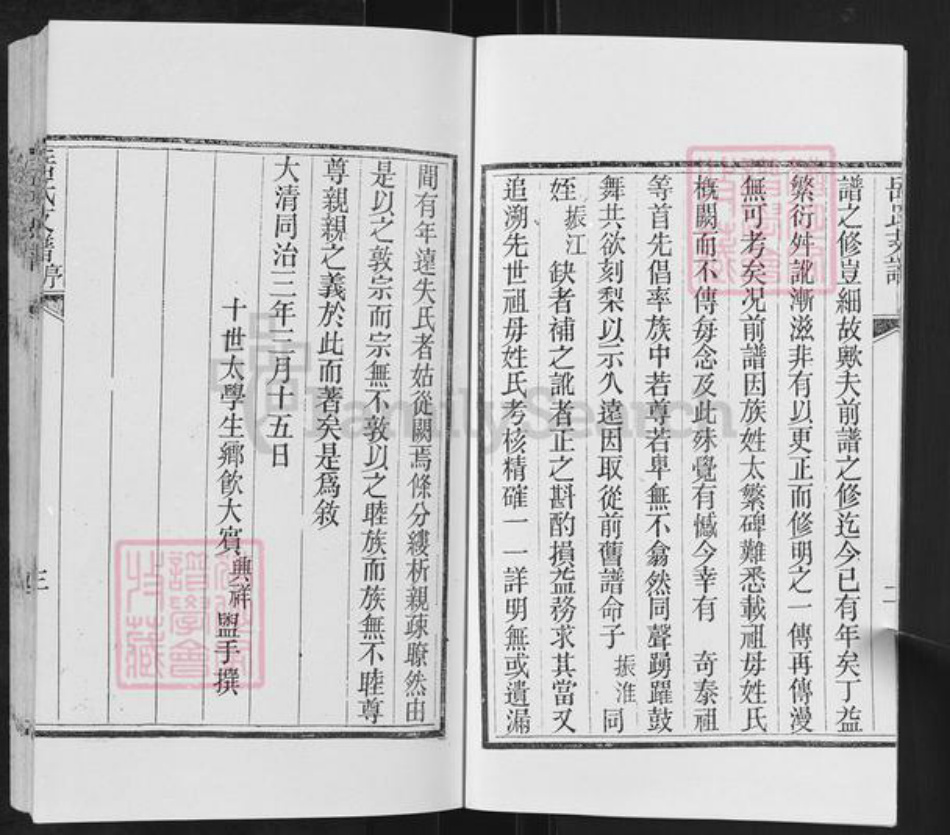 譜之修豈細故歟夫前譜之修迄今已有年矣丁益
繁衍舛訛漸滋非有以更正而修明之一傳再傳漫
無可考矣况前譜因族姓太繁碑難悉載祖母姓氏
概闕而不傳每念及此殊覺有憾今幸有 奇泰祖
等首先倡率族中若尊若卑無不翕然同聲踴躍鼓
舞共欲刻梨以示久遠因取從前舊譜命子 振淮 同
姪 振江 缺者補之訛者正之斟酌損益務求其當又
追溯先世祖母姓氏考核精確一一詳明無或遺漏
間有年遠失氏者姑從闕焉條分縷析親疎瞭然由
是以之敦宗而宗無不敦以之睦族而族無不睦尊
尊親親之義於此而著矣是為敘
大清同治三年二月十五日
十世太學生鄉飲大賓 興祥 盥手撰
氏支譜 序
三
FamilySearch
譜學會
收藏